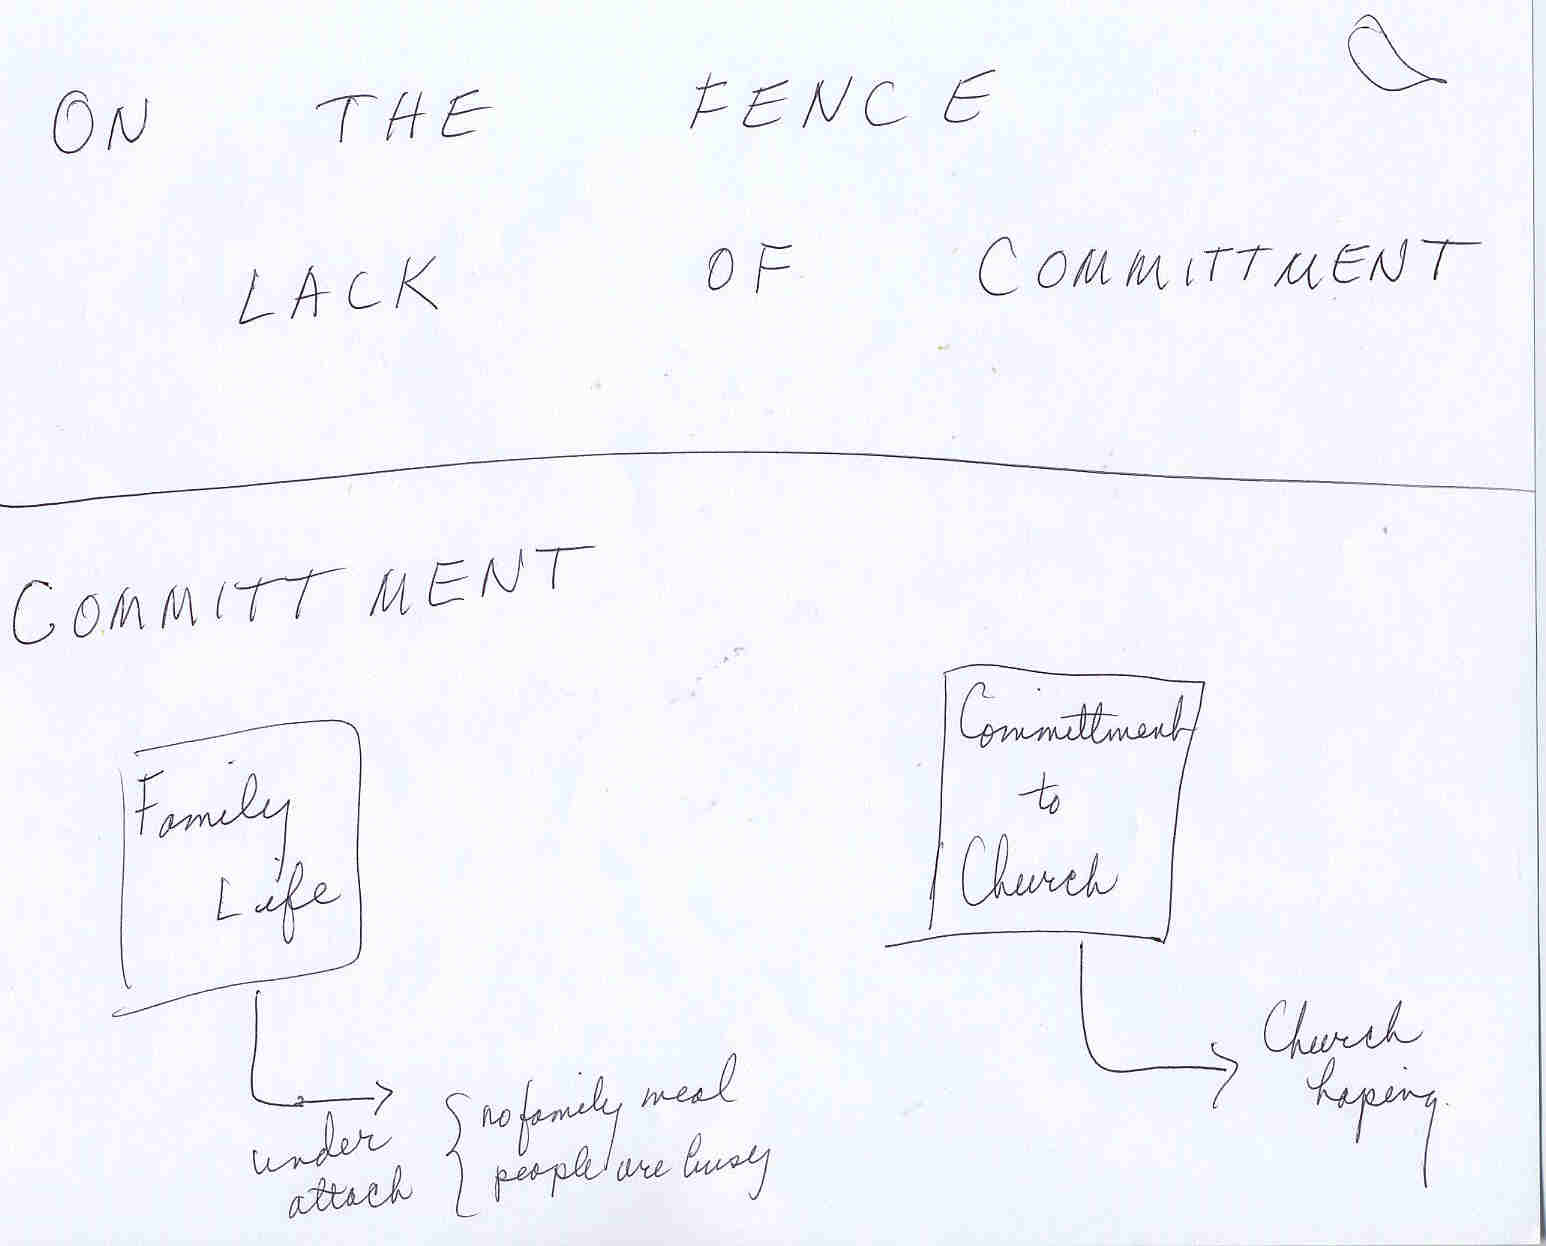 ON THE FENCE
LACK OF COMMITTMENT
COMMITTMENT
Family
Life
under
attach
{ no family meal
people are busy
Committment
to
Church
Church
hoping.